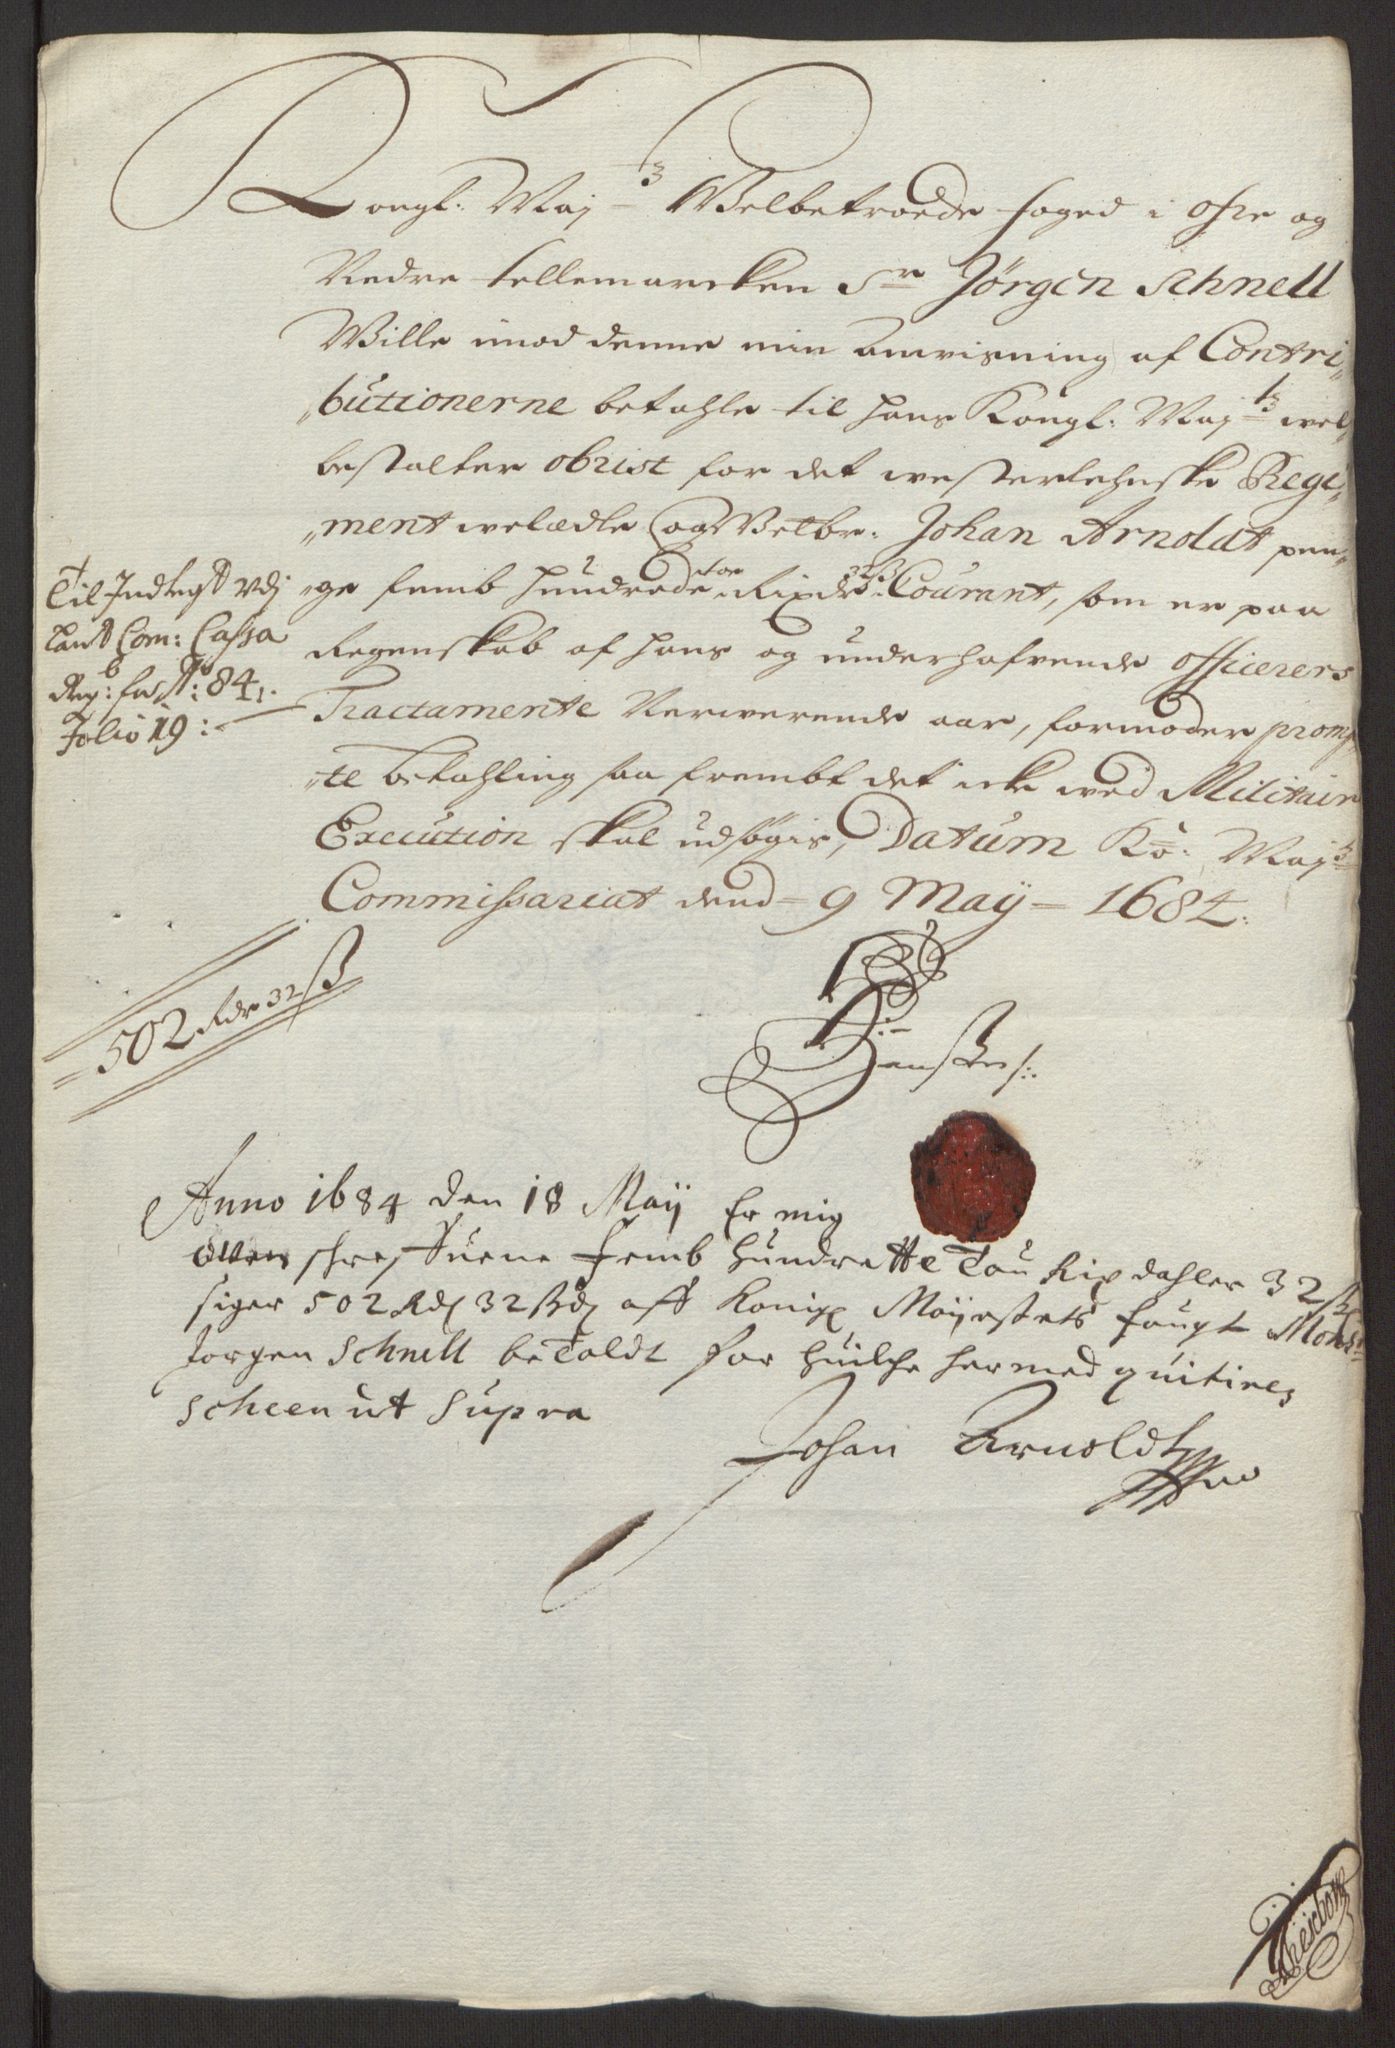 Kongl: Maj:ts Welbetroede foged i øfre og
Nedre Tellemarcken Sr Jørgen Schnell
Wille imod denne min Anvisning af Contri,,
,,butionerne betahle til hans Kongl: Maj:ts wel,,
bestalter obrist for det westerlehnske Regi,,
,,ment welædle og Welbr: Johan Arnoldt pen,,
,,ge femb hundrede toe Rixdr 32 ß Courant, som er paa
Regenskab af hans og underhafvende officerers
Tractamente Nerwerende aar, formoder promp
,,te betahling saa frembt det icke wed Militair
Execution skal udsøgis, Datum Ko: Maj:ts
Commissariat dend 9 Maÿ 1684:
Til Indtegt vdj
Land Com: Cassa
Reg: for Ao: 84,
Folio 19:
502 Rdr 32 ß
Anno 1684 den 18 Maÿ Er mig
Owen schreffuene Femb Hundrette Tou Rix dahler 32 ß
siger 502 Rd 32 ß aff Konigl Maÿestets fougt Monsr
Jorgen Schnell beTaldt for huilche hermed quitires
Scheen ut Supra
Johan Arnoldt